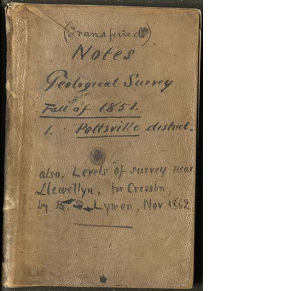 (Transferred)
Notes
Geological Survey
Fall of 1851.
1. Pottsville district.
also, Levels of survey near
Llewellyn, for Cresson,
by B. S. Lyman, Nov 1862